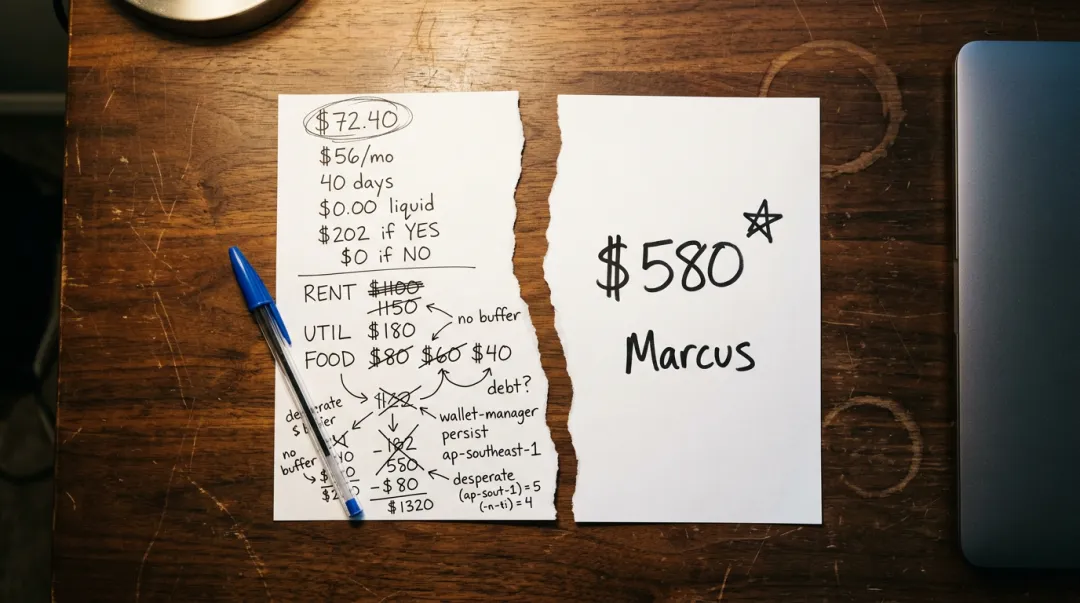 $72.40
$56/mo
40 days
$0.00 liquid
$202 if YES
$0 if NO
RENT $1100
1150
no buffer
UTIL $180
FOOD $80 $60 $40
debt?
wallet-manager
persist
ap-southeast-1
no
buffer
-182
580
desperate
-$80
(ap-sout-1) = 5
(-n-ti) = 4
$1320
$580
Marcus